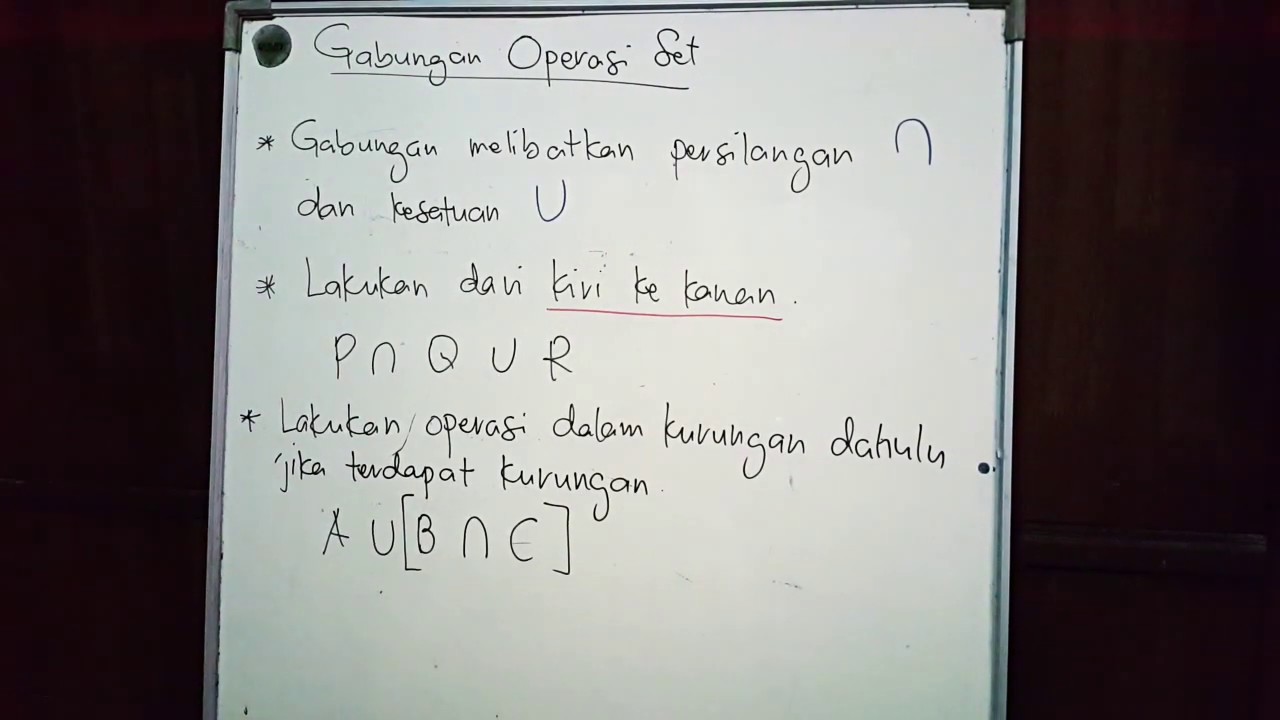 Gabungan Operasi Set
* Gabungan melibatkan persilangan ∩
dan kesatuan ∪
* Lakukan dari kiri ke kanan.
P ∩ Q ∪ R
* Lakukan operasi dalam kurungan dahulu
jika terdapat kurungan.
A ∪ [B ∩ C]